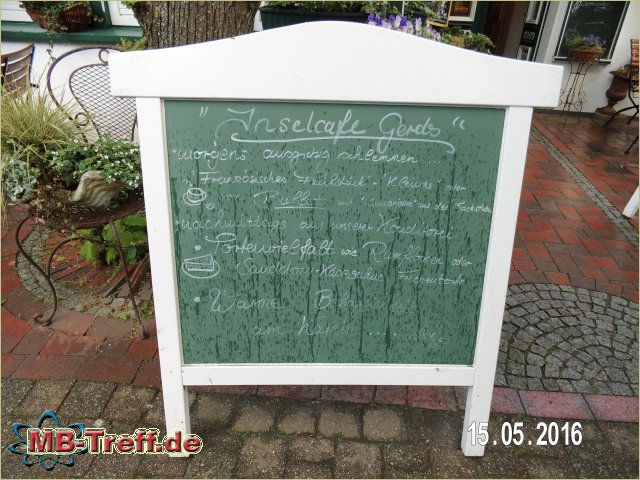 "Inselcafe Gerdes"
• morgens ausgiebig schlemmen ....
Französisches Frühstück - kleines oder
vom Buffet mit aus der Backstube
• nachmittags aus unserer Konditorei
• Tortenvielfalt wie Rumflocken oder
Sanddorn- Friesentorte
• Warme
am Kamin ....
MB-Treff.de
15.05.2016